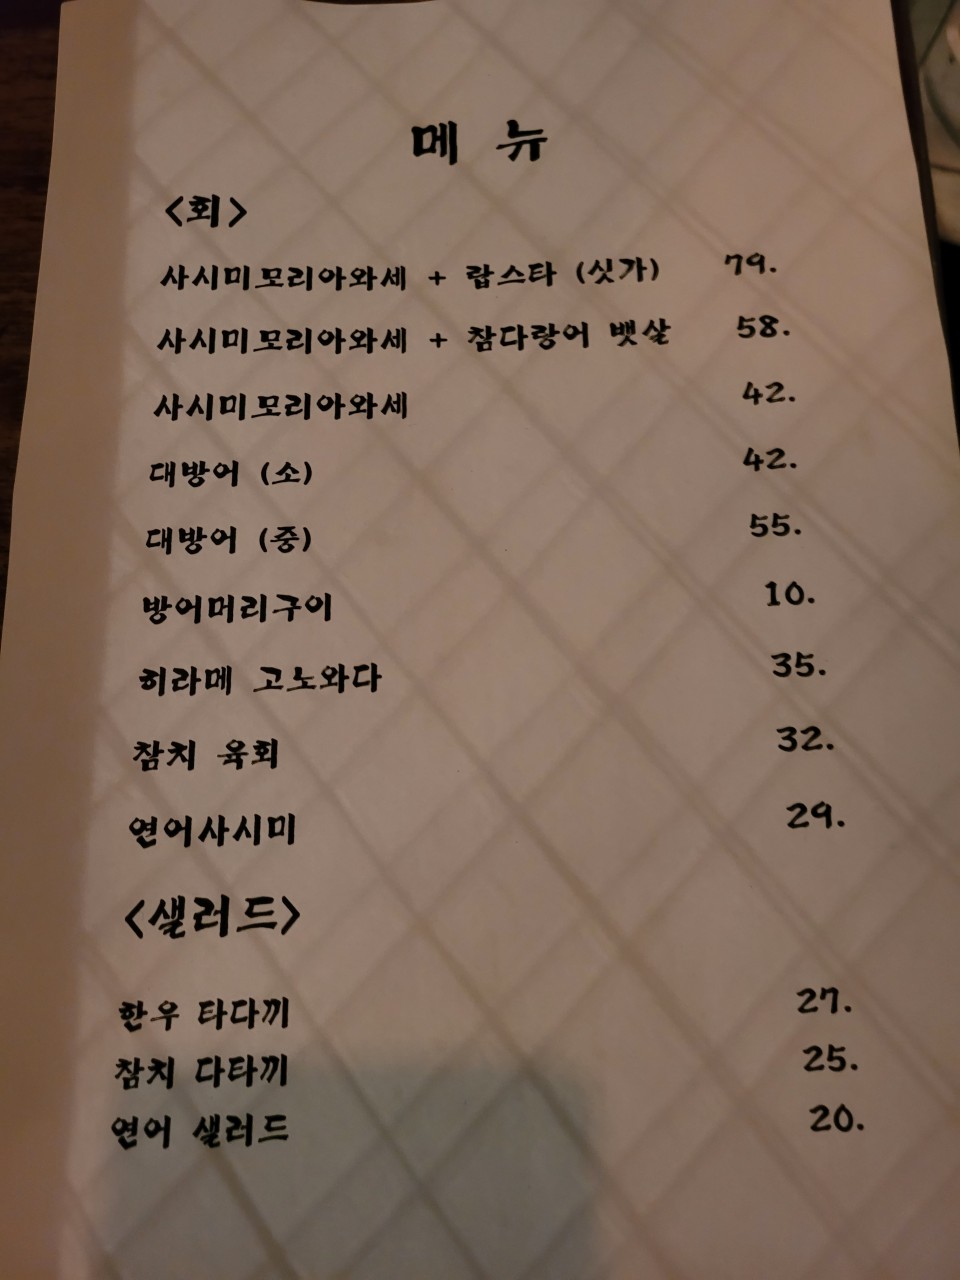 메 뉴
<회>
사시미모리아와세 + 랍스타 (싯가) 79.
사시미모리아와세 + 참다랑어 뱃살 58.
사시미모리아와세 42.
대방어 (소) 42.
대방어 (중) 55.
방어머리구이 10.
히라메 고노와다 35.
참치 육회 32.
연어사시미 29.
<샐러드>
한우 타다끼 27.
참치 다타끼 25.
연어 샐러드 20.